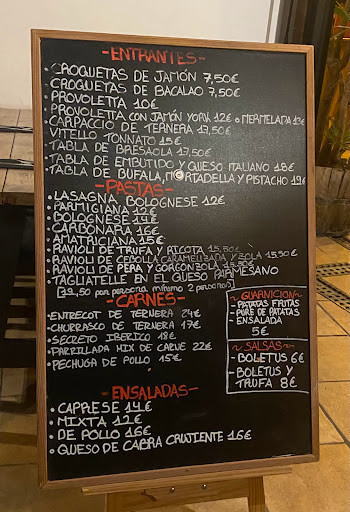 -ENTRANTES-
• CROQUETAS DE JAMÓN 7,50€
• CROQUETAS DE BACALAO 7,50€
• PROVOLETTA 10€
• PROVOLETTA CON JAMÓN YORK 12€ o MERMELADA 13€
• CARPACCIO DE TERNERA 17,50€
• VITELLO TONNATO 15€
• TABLA DE BRESAOLA 17,50€
• TABLA DE EMBUTIDO Y QUESO ITALIANO 18€
• TABLA DE BUFALA, MORTADELLA Y PISTACHO 19€
-PASTAS-
• LASAGNA BOLOGNESE 12€
• PARMIGIANA 12€
• BOLOGNESE 15€
• CARBONARA 16€
• AMATRICIANA 15€
• RAVIOLI DE TRUFA Y RICOTA 15,50€
• RAVIOLI DE CEBOLLA CARAMELIZADA Y ZOLA 15,50€
• RAVIOLI DE PERA Y GORGONZOLA 15,50€
• TAGLIATELLE EN EL QUESO PARMESANO
[19,50 por persona mínimo 2 personas]
-CARNES-
• ENTRECOT DE TERNERA 24€
• CHURRASCO DE TERNERA 17€
• SECRETO IBERICO 18€
• PARRILLADA MIX DE CARNE 22€
• PECHUGA DE POLLO 15€
~ GUARNICION ~
- PATATAS FRITAS
- PURE DE PATATAS
- ENSALADA
5€
~ SALSAS ~
- BOLETUS 6€
- BOLETUS Y
TRUFA 8€
ENSALADAS-
• CAPRESE 14€
• MIXTA 12€
• DE POLLO 16€
• QUESO DE CABRA CRUJIENTE 16€